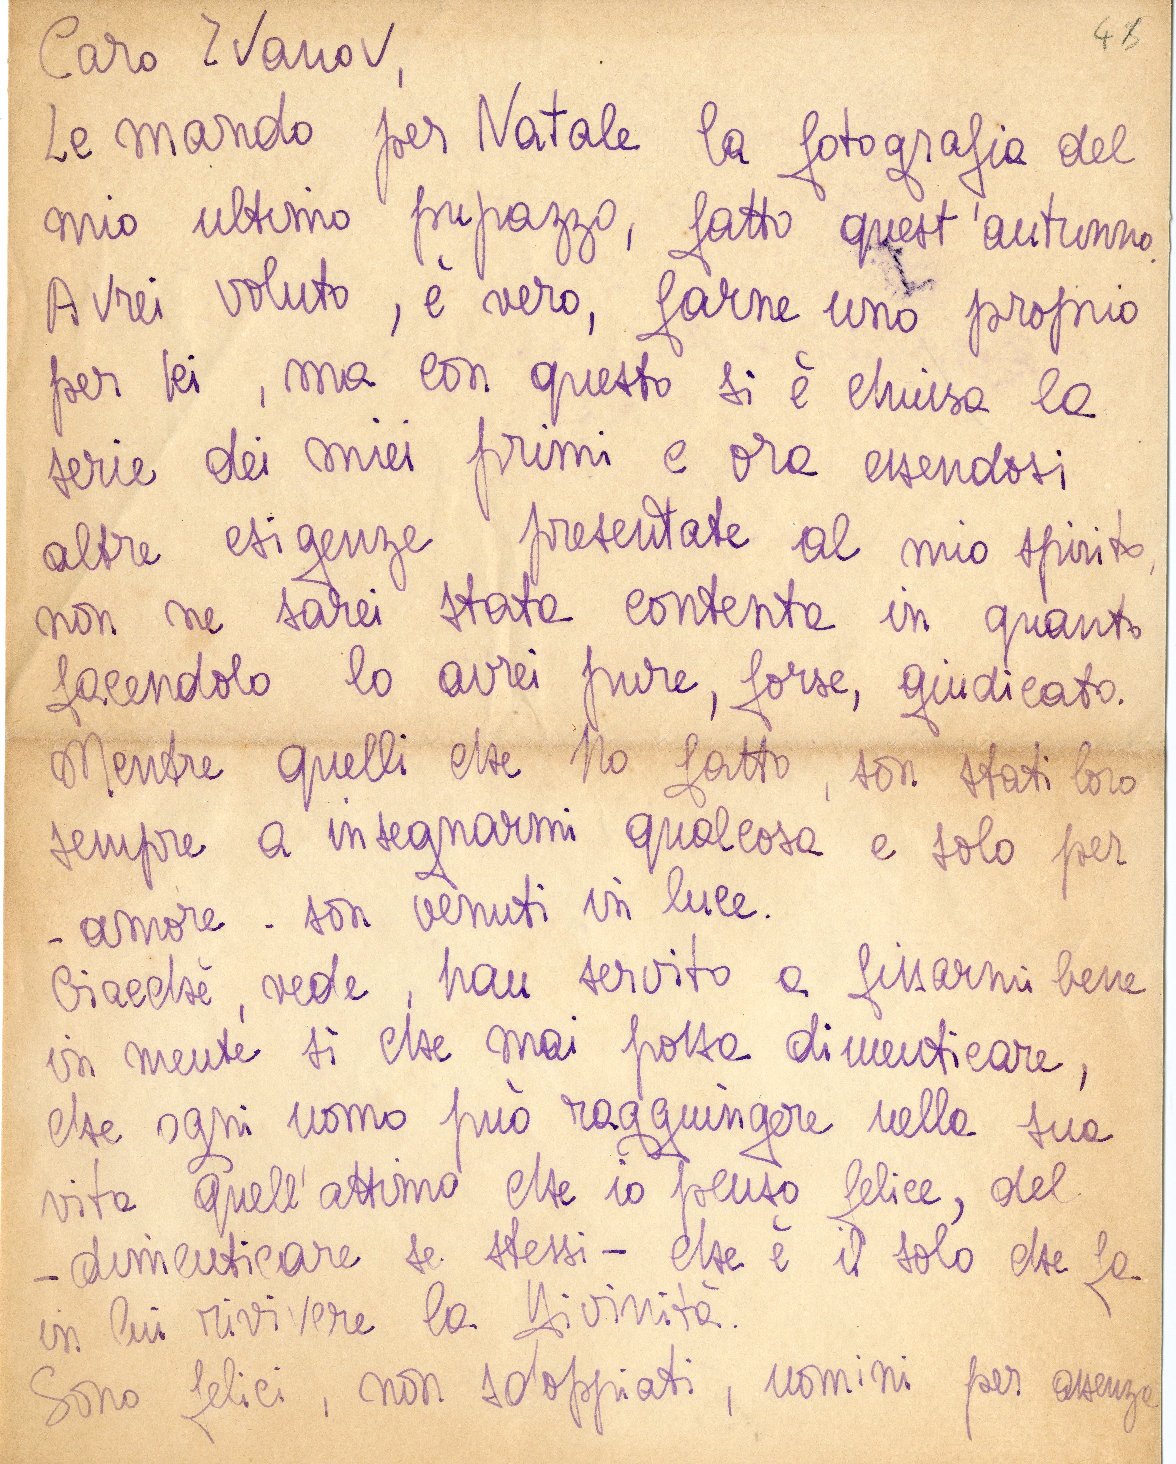 48
Caro Ivanov,
Le mando per Natale la fotografia del
mio ultimo pupazzo, fatto quest'autunno.
Avrei voluto, è vero, farne uno proprio
per lei, ma con questo si è chiusa la
serie dei miei primi e ora essendosi
altre esigenze presentate al mio spirito,
non ne sarei stata contenta in quanto
facendolo lo avrei pure, forse, giudicato.
Mentre quelli che ho fatto, son stati loro
sempre a insegnarmi qualcosa e solo per
- amore - son venuti in luce.
Giacchè, vede, han servito a fissarmi bene
in mente sì che mai possa dimenticare,
che ogni uomo può raggiungere nella sua
vita quell'attimo che io penso felice, del
- dimenticare se stessi - che è il solo che fa
in lui rivivere la Divinità.
Sono felici, non sdoppiati, uomini per assenza